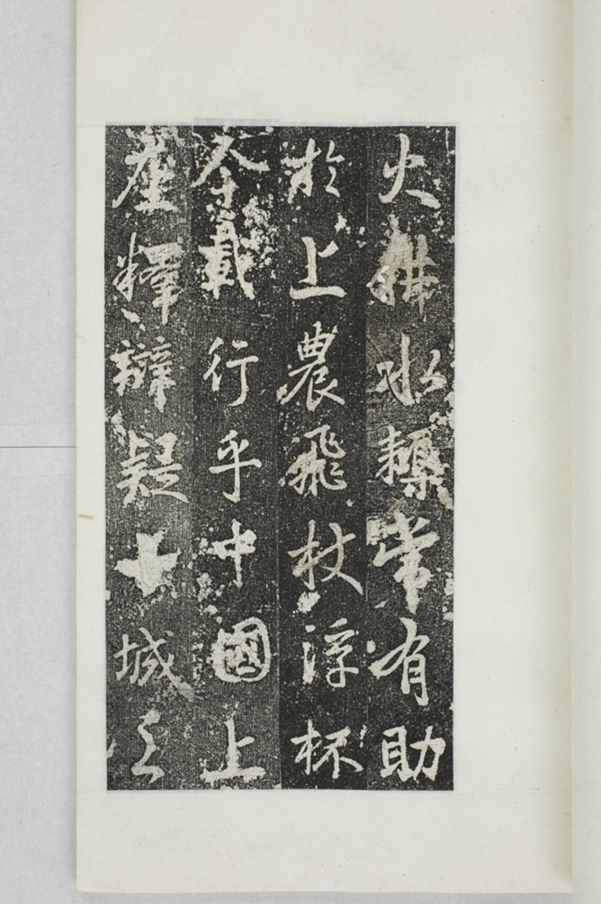 火耕水耨常有助
於上農飛杖浮杯
載行乎中國上
座釋辯疑十城之